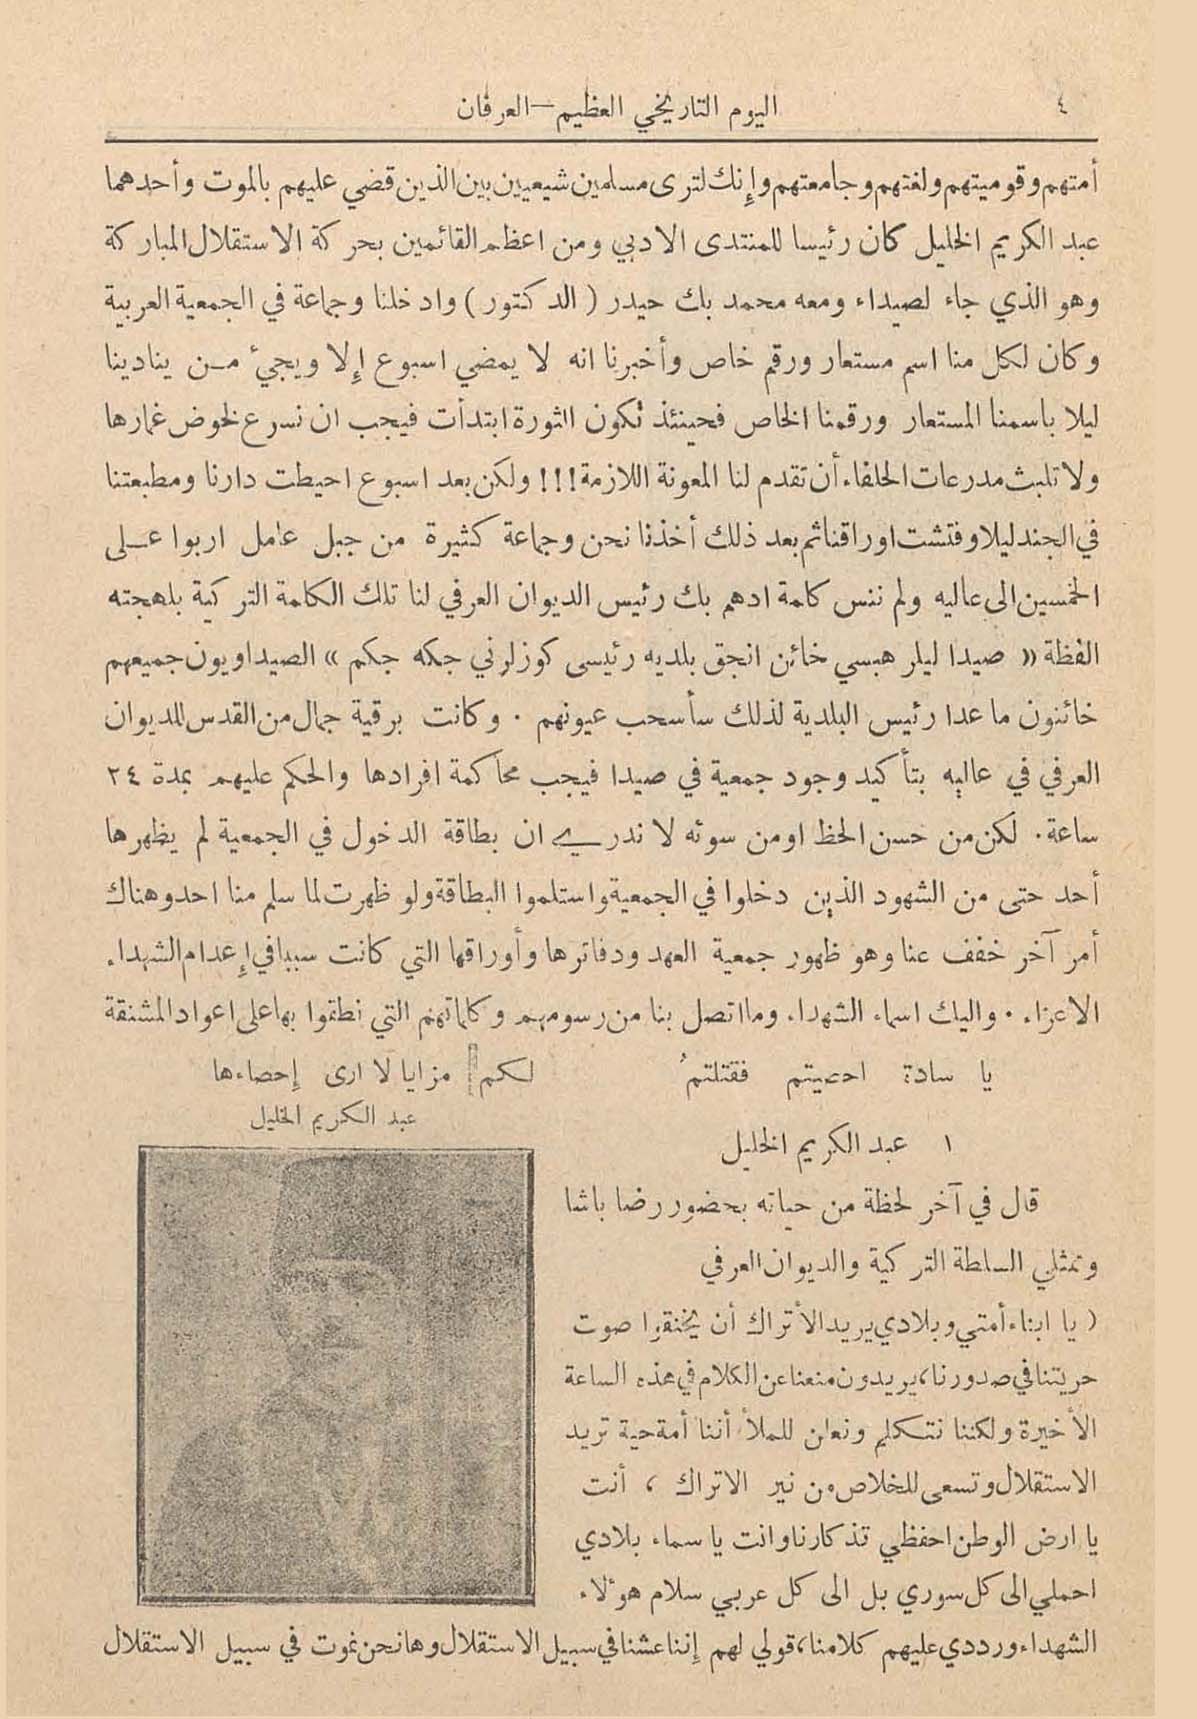 ٤
اليوم التاريخي العظيم — العرفان
أمتهم وقوميتهم ولغتهم وجامعتهم وإنك لترى مسلمين شيعيين بين الذين قضي عليهم بالموت وأحدهما
عبد الكريم الخليل كان رئيسا للمنتدى الادبي ومن اعظم القائمين بحركة الاستقلال المباركة
وهو الذي جاء لصيداء ومعه محمد بك حيدر ( الدكتور ) وادخلنا وجماعة في الجمعية العربية
وكان لكل منا اسم مستعار ورقم خاص وأخبرنا انه لا يمضي اسبوع إلا ويجيء من ينادينا
ليلا باسمنا المستعار ورقمنا الخاص فحينئذ تكون الثورة ابتدأت فيجب ان نسرع لخوض غمارها
ولا تلبث مدرعات الحلفاء أن تقدم لنا المعونة اللازمة!!! ولكن بعد اسبوع احيطت دارنا ومطبعتنا
في الجند ليلا وفتشت اوراقنا ثم بعد ذلك أخذنا نحن وجماعة كثيرة من جبل عامل اربوا عـلى
الخمسين الى عاليه ولم ننس كلمة ادهم بك رئيس الديوان العرفي لنا تلك الكلمة التركية بلهجته
الفظة « صيدا ليلر هبسي خائن انجق بلديه رئيسى كوزلرني جكه جكم » الصيداويون جميعهم
خائنون ما عدا رئيس البلدية لذلك سأسحب عيونهم . وكانت برقية جمال من القدس للديوان
العرفي في عاليه بتأكيد وجود جمعية في صيدا فيجب محاكمة افرادها والحكم عليهم بمدة ٢٤
ساعة . لكن من حسن الحظ او من سوئه لا ندري ان بطاقة الدخول في الجمعية لم يظهرها
أحد حتى من الشهود الذين دخلوا في الجمعية واستلموا البطاقة ولو ظهرت لما سلم منا احد وهناك
أمر آخر خفف عنا وهو ظهور جمعية العهد ودفاترها وأوراقها التي كانت سببا في إعدام الشهداء
الاعزاء . واليك اسماء الشهداء وما اتصل بنا من رسومهم وكلماتهم التي نطقوا بها على اعواد المشنقة
يا سادة احييتم فقتلتم لـكم مزايا لا ارى إحصاءها
عبد الكريم الخليل
١ عبد الكريم الخليل
قال في آخر لحظة من حياته بحضور رضا باشا
وممثلي السلطة التركية والديوان العرفي
( يا ابناء أمتي وبلادي يريد الأتراك أن يخنقوا صوت
حريتنا في صدورنا، يريدون منعنا عن الكلام في هذه الساعة
الأخيرة ولكننا نتكلم ونعلن للملأ أننا أمة حية تريد
الاستقلال وتسعى للخلاص من نير الاتراك ، أنت
يا ارض الوطن احفظي تذكارنا وانت يا سماء بلادي
احملي الى كل سوري بل الى كل عربي سلام هؤلاء
الشهداء ورددي عليهم كلامنا، قولي لهم إننا عشنا في سبيل الاستقلال وها نحن نموت في سبيل الاستقلال